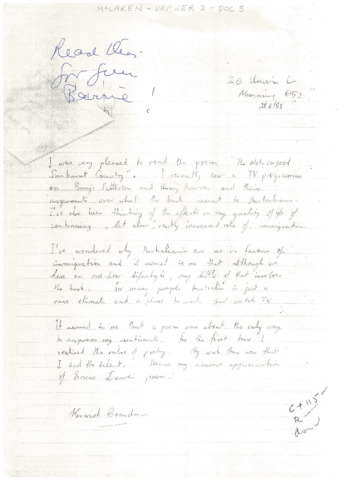 McLAREN - DRAWER 2 - DOC 5
Read this
for fun
Barrie!
I was very pleased to read the poem "The Not-so-good
Sunburnt Country". I recently saw a TV programme
on Banjo Patterson and Henry Lawson and their
arguments over what the bush meant to Australians.
I've also been thinking of the effects on my quality of life of
continuing, let alone vastly increased rate of, immigration.
I've wondered why Australians are so in favour of
immigration and it seemed to me that although we
have an out-door lifestyle, very little of that involves
the bush. For many people Australia is just a
nice climate and a place to work and watch TV.
It seemed to me that a poem was about the only way
to express my emotions. For the first time I
realised the value of poetry. My wish then was that
I had the talent. Hence my appreciation
of poem.